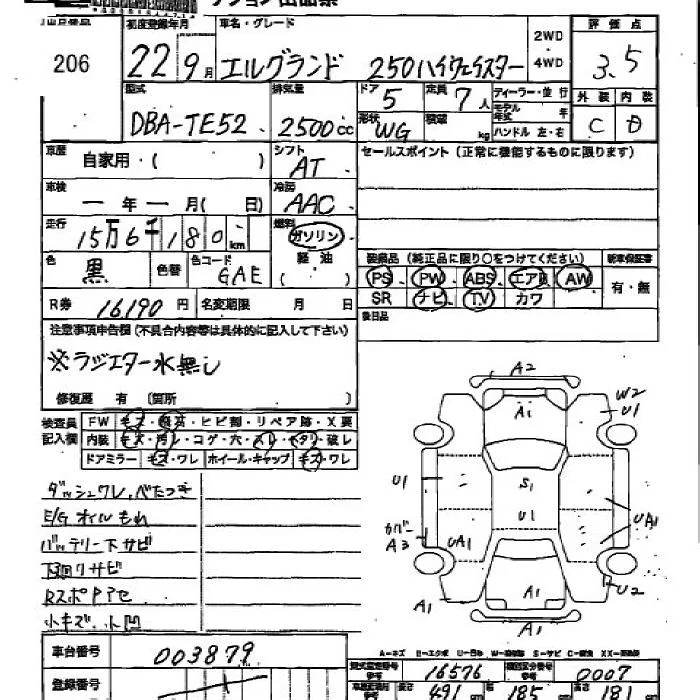 206
初度登録年月
22年9月
車名・グレード
エルグランド 250ハイウェイスター
2WD
4WD
評価点
3.5
型式
DBA-TE52
排気量
2500cc
ドア
5
定員
7人
形状
WG
積載
kg
ディーラー・並行
モデル年式 年
ハンドル 左・右
外装 内装
C D
車歴
自家用・( )
シフト
AT
セールスポイント(正常に機能するものに限ります)
車検
ー年ー月( 日)
冷房
AAC
走行
15万6千180km
燃料
ガソリン
軽油
( )
色
黒
色替
色コード
GAE
装備品(純正品に限り○をつけてください)
新車保証書
PS PW ABS エアB AW
SR ナビ TV カワ
有・無
R券 16190円
名変期限 月 日
後日品
注意事項申告欄(不具合内容等は具体的に記入して下さい)
※ラジエター水無し
修復歴 有 (箇所 )
検査員記入欄
FW キズ・飛石・ヒビ割・リペア跡・X要
内装 キズ・汚レ・コゲ・穴・スレ・ヘタリ・破レ
ドアミラー キズ・ワレ ホイール・キャップ キズ・ワレ
ダッシュワレ、べたつき
E/G オイルもれ
バッテリー下サビ
下廻りサビ
RスポPアセ
小キズ、小凹
A2
A1
W2
U1
U1
S1
U1
カバー
A3
UA1
UA1
A1
U2
A1
A1
車台番号 003879
登録番号
型式指定番号 16576
類別区分番号 0007
長さ 491 幅 185 高さ 181